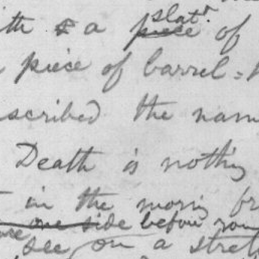 slat
ith & a piece of
piece of barrel-
scribed the nam
Death is nothing
in the morng fr
one side before roun
see on a stret